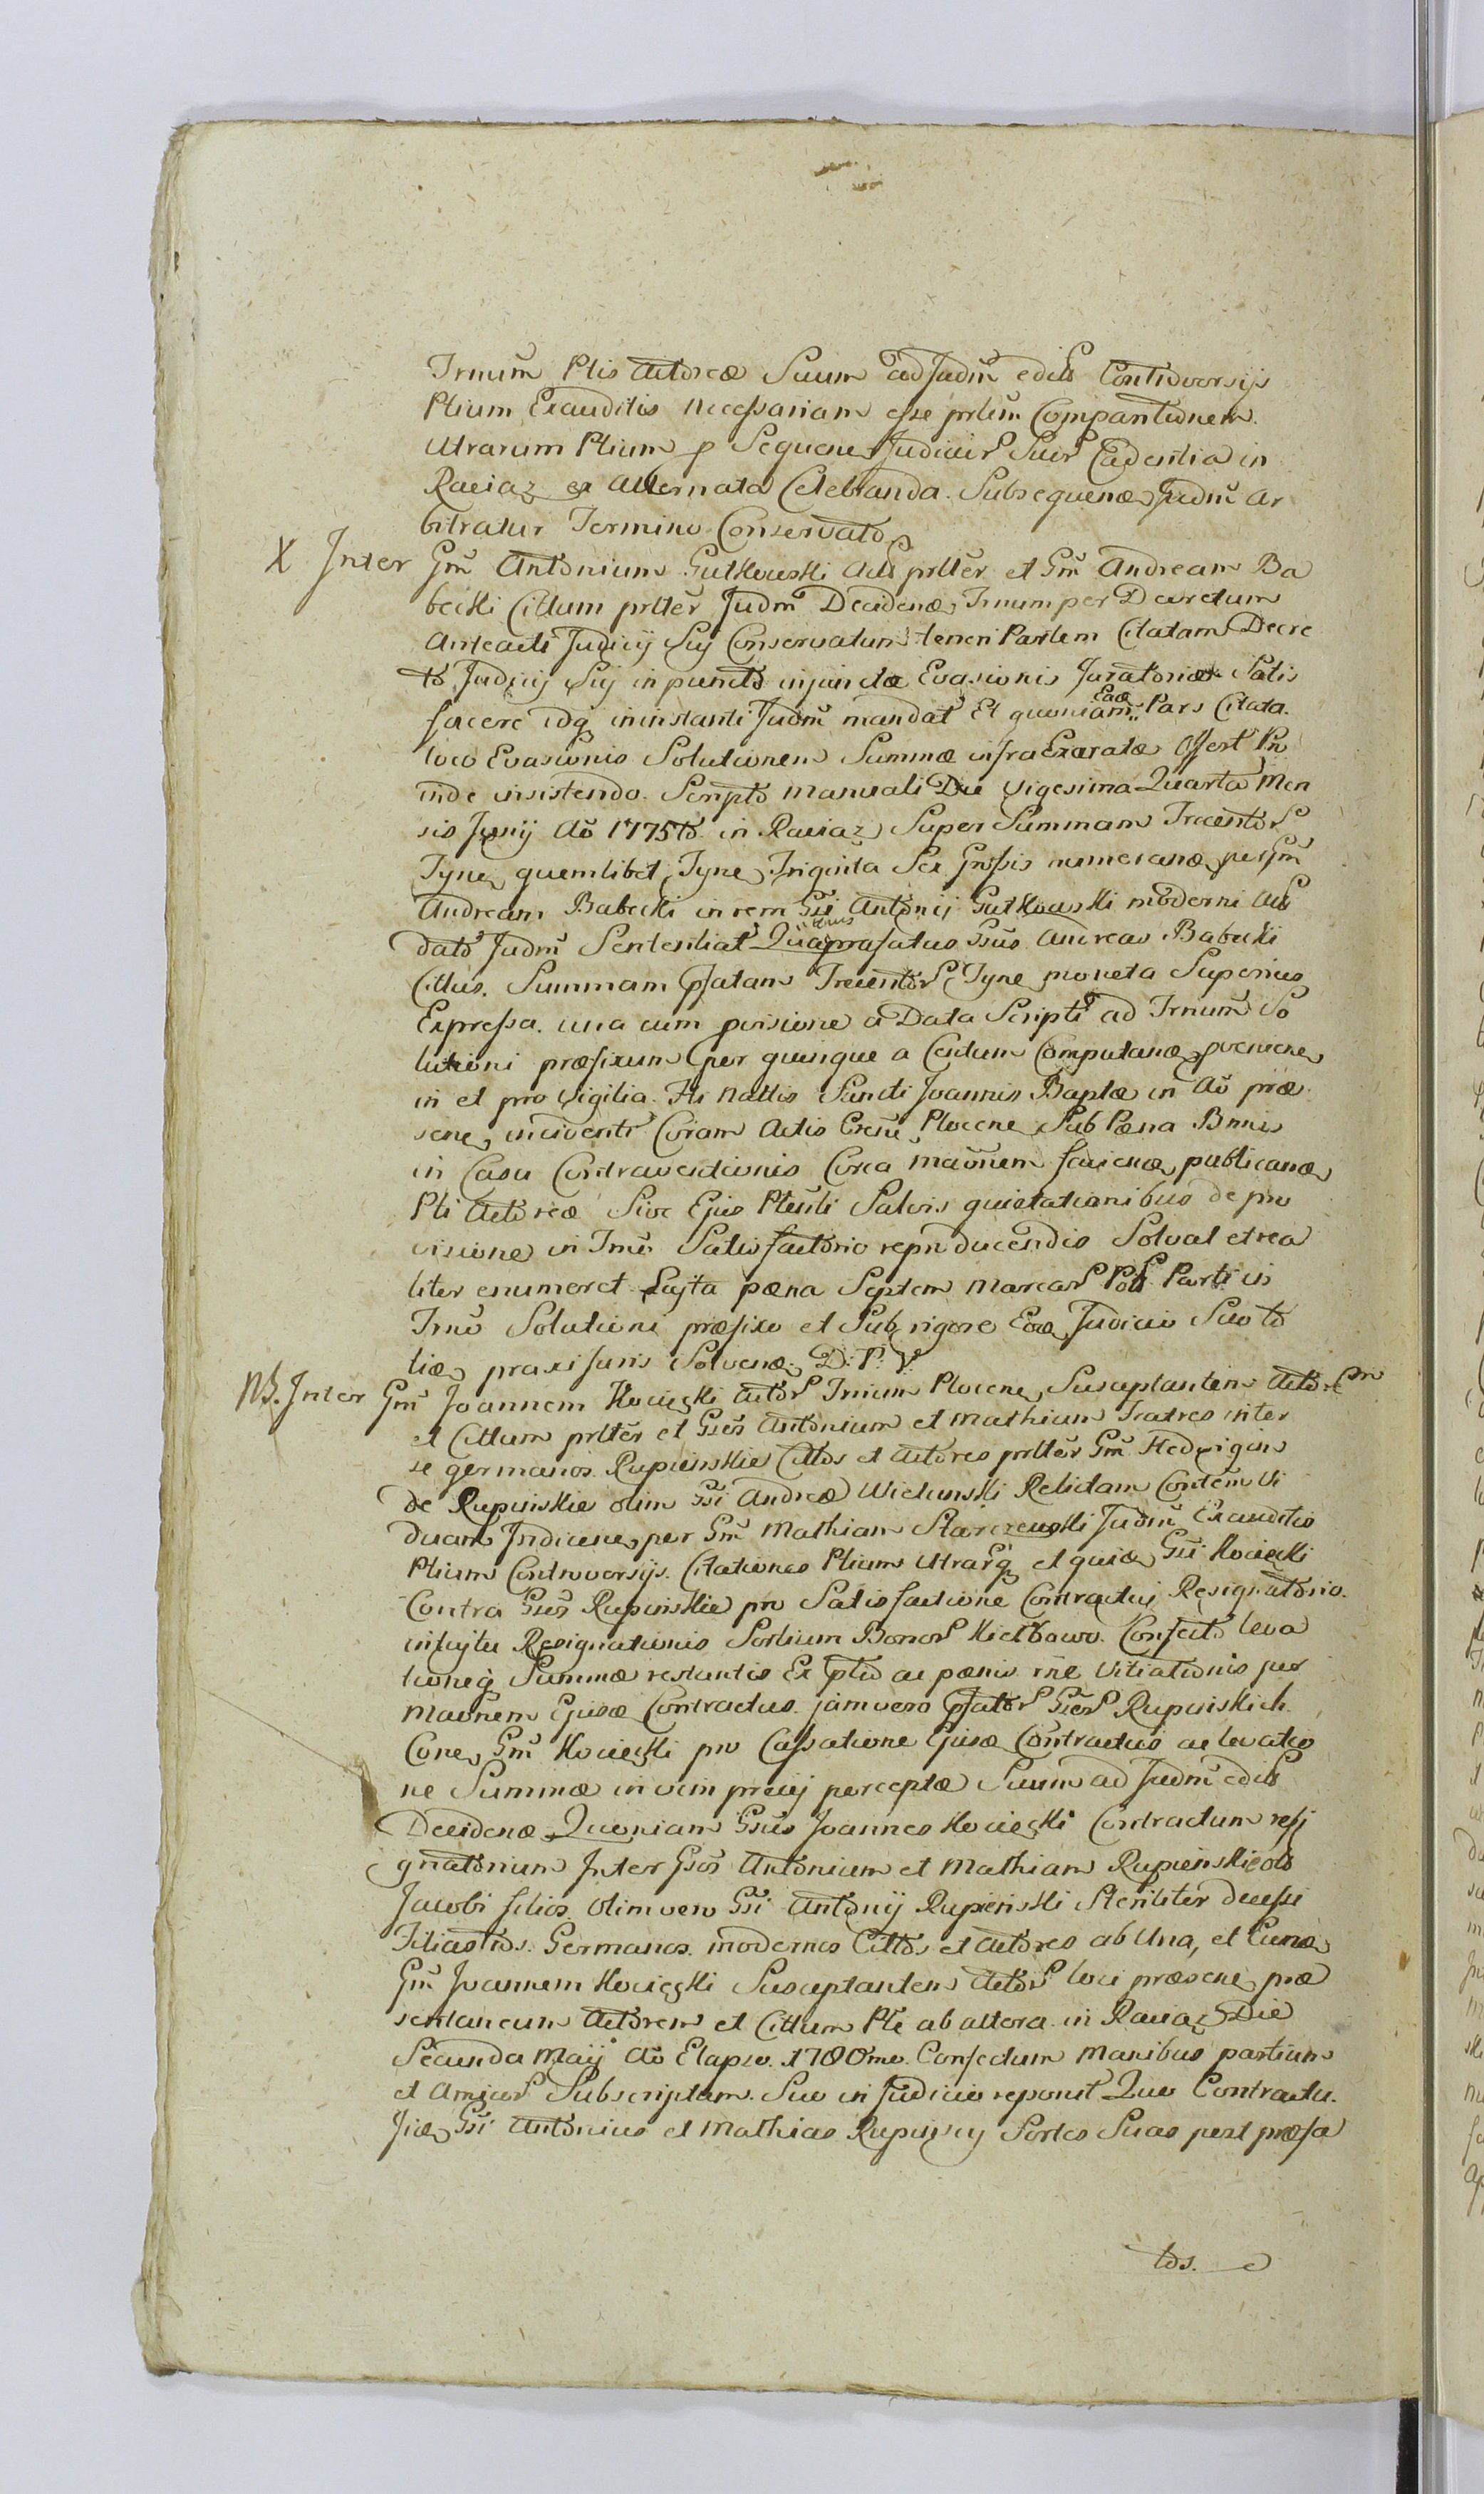 Trnum Ptis Actoreæ Suum ad Judm edicto Controversijs
Ptium Exauditis necessariam esse prlem Comparitionem
Utrarum Ptium p Sequen Judicior Suor Cadentia in
Raciąz ex Alternata Celebranda Subsequen Judm Ar
bitratur Termino Conservato
X Inter Gm Antonium Gutkowski Act prltèr et Gm Andream Ba
becki Cittum prltèr Judm Decidendæ Trnum per Decretum
Anteacti Judicij Sij Conservatum teneri Partem Citatam Decre
to Judicij Sij in puncto injunctæ Evasionis Juratoriæ Satis
facere idq in instanti Judm mandat Et quoniam Eadæ Pars Citata
loco Evasionis Solutionem Summæ infra Exaratæ Offert Pro
inde insistendo Scripto manuali Die Vigesima Quarta Men
sis Junij Ao 1775to in Raciąz Super Summam Trecentor
Tyne quemlibet Tyne Triginta Sex Grossis numeran per Gm
Andream Babecki in rem Gsi Antonij Gutkowski moderni Act
dato Judm Sententiat Quatenus præfatus Gsus Andreas Babecki
Cittus Summam pfatam Trecentor Tyne moneta Superius
Expressa una cum pvisione a Data Scripti ad Trnum So
lutioni præfixum per quinque a Centum Computan pvenien
in et pro Vigilia Fti Nattis Sancti Joannis Baptæ in Ao præ
sen incidenti Coram Actis Crsu Plocen Sub Pæna Bnnis
in Casu Contraventionis Circa maonem facien publican
Pti Actoreæ Sive Ejus Pteñti Salvis quietationibus de pro
visione in Trno Satisfactorio reproducendis Solvat et rea
liter enumeret Lujta pæna Septem Marcar Pol Parti in
Trno Solutioni præfixo et Sub rigore Eoæ Judicio Suo to
tiæ praxi Juris Solven D: P: V:
NB. Inter Gm Joannem Kociecki Actor Trnum Plocen Susceptantem Actorem
et Cittum prltèr et Gsos Antonium et Mathiam Fratres inter
se germanos Rupinskie Cittos et Actores prltèr Gm Hedvigim
de Rupinskie olim Gsi Andreæ Wielunski Relictam Contem Vi
duam Indicen per Gm Mathiam Starczewski Judm Exauditis
Ptium Controversijs Citationes Ptium Utrarq et quia Gsi Kociecki
Contra Gsos Rupinskie pro Satisfactione Contractui Resignatorio
in lujtu Resignationis Sortium Bonor Kiełbowo Confecto leva
tioneq Summæ restantis Ex ptio ac pænis rne Vitiationis per
Maonem Ejusdæ Contractus jam vero pfator Gsor Rupinskich
Con Gm Kociecki pro Cassatione Ejusdæ Contractus ac levatio
ne Summæ in vim pretij perceptæ Suum ad Judm edicto
Decidendæ Quoniam Gsus Joannes Kociecki Contractum resi
gnatorium Inter Gsos Antonium et Mathiam Rupienskie olo
Jacobi filios olim vero Gsi Antonij Rupieński Steriliter decessi
Filiastros Germanos modernos Cittos et Actores ab Una, et Eundæ
Gm Joannem Kociecki Susceptantem Actor loci præsen præ
sentaneum Actorem et Cittum Pte ab altera in Raciąz Die
Secunda Maij Ao Elapso 1780mo Confectum Manibus partium
et Amicor Subscriptam Suo in Judicio reponit Quo Contractu
Iidæ Gsi Antonius et Mathias Rupińscy Sortes Suas post præfa
tos